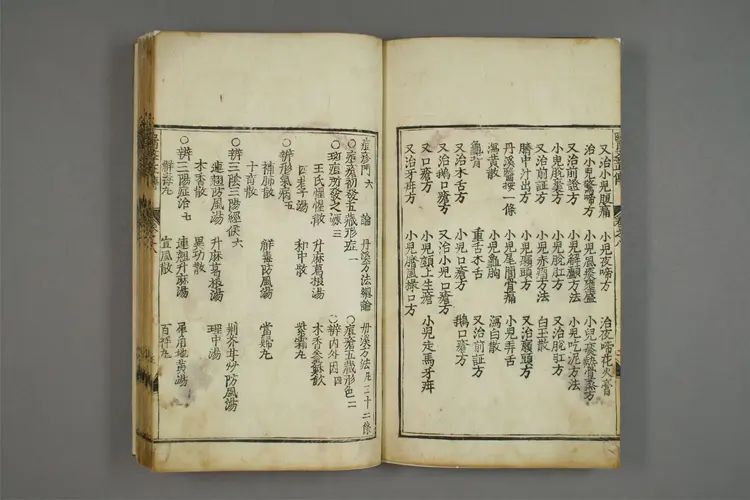 又治小兒腹痛 小兒夜啼方 治夜啼花火膏
治小兒驚啼方 小兒風痰壅盛 小兒痰熱骨蒸方
又治前證方 小兒解顱方法 小兒吃泥方法
小兒脫囊方 小兒脫肛方 又治脫肛方
又治前証方 小兒赤瘤方法 白玉散
臍中汁出方 小兒顖頭方 又治顖頭方
丹溪醫按一條 小兒尾骨痛 小兒弄舌
瀉黃散 小兒龜胸 瀉白散
龜背 重舌木舌 又治前証方
又治木舌方 小兒口瘡方 鵝口瘡方
又治鵝口瘡方 又治小兒口瘡方
又口瘡方 小兒頭上生瘡 小兒走馬牙疳
又治牙疳方 小兒臍風撮口方
痘疹門六 論 丹溪方法 丹溪方法凡二十二條
○痘瘡初發五藏形症一 ○痘瘡五藏形色二
○斑痘所發之源三 ○辨內外因四
王氏惺惺散 升麻葛根湯 木香參蘇飲
四君子湯 和中散 紫霜丸
○辨形氣病五
補肺散 解毒防風湯 當歸丸
十奇散
○辨三陰三陽經候六 荊芥甘草防風湯
連翹防風湯 升麻葛根湯 理中湯
木香散 異功散
○辨三陽症治七 連翹升麻湯 犀角地黃湯
解毒丸 宣風散 百祥丸